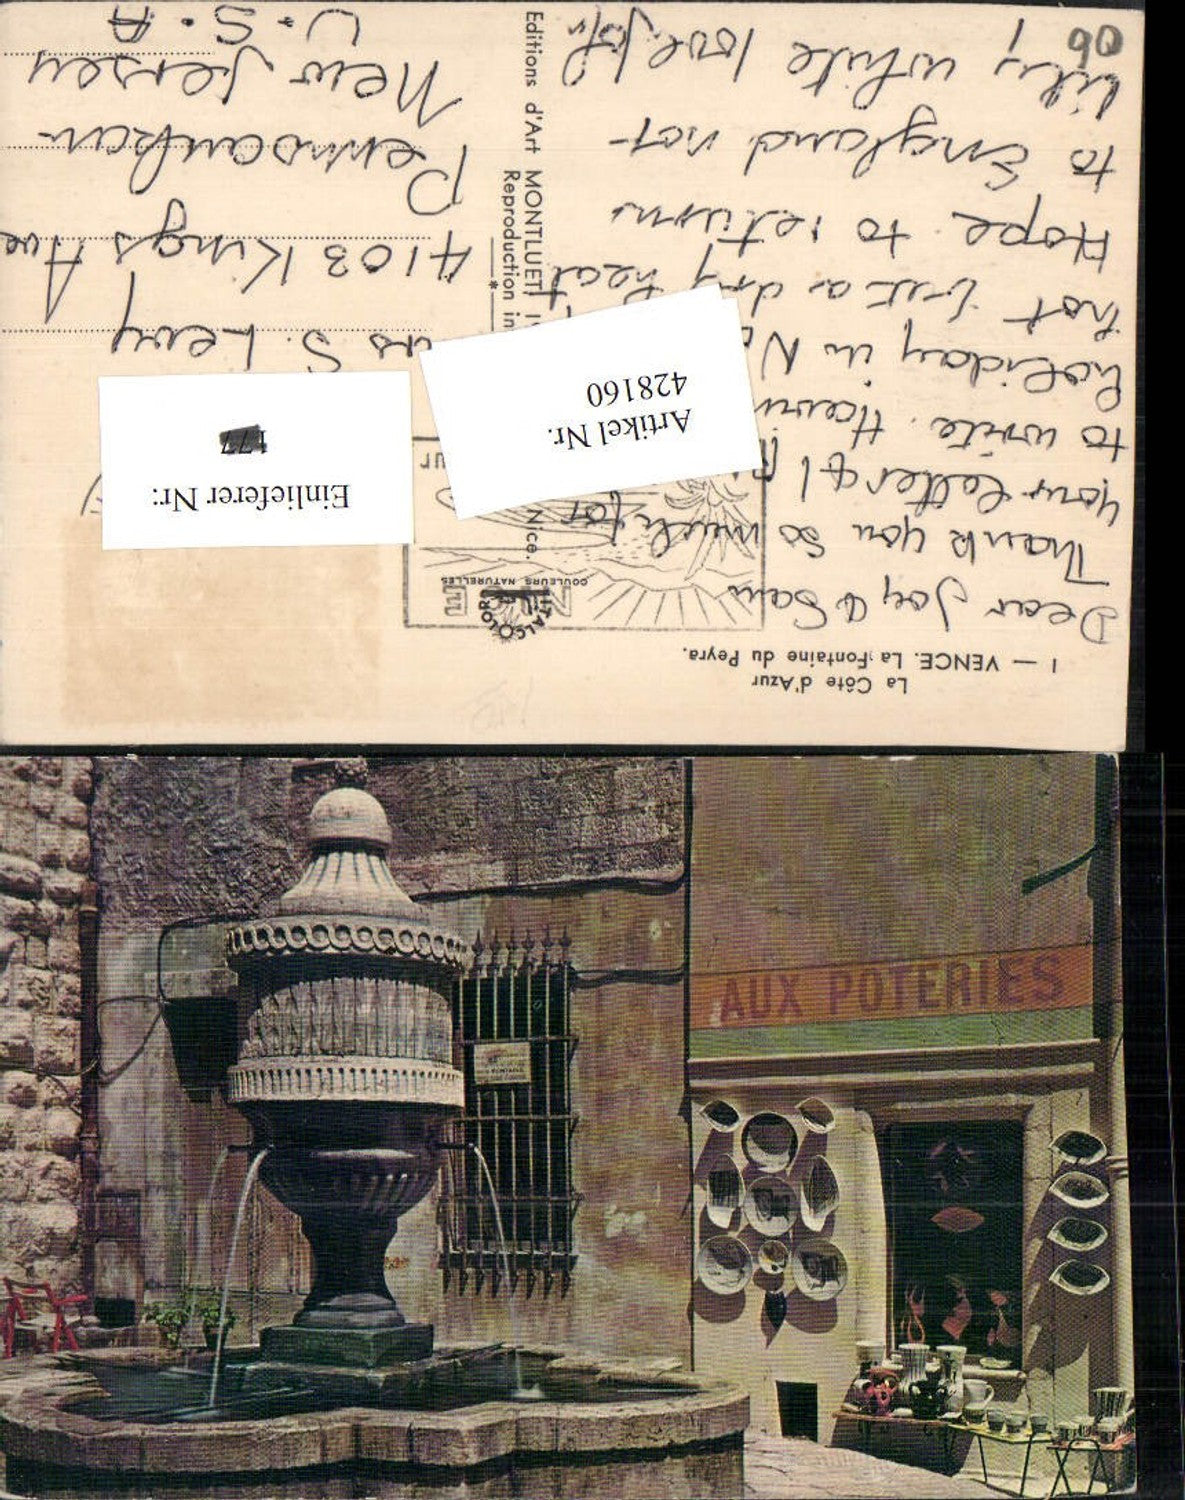 La Côte d'Azur
1 — VENCE. La Fontaine du Peyra.
Dear Joy & Sam
Thank you so much for
your letter & I
to write. Havin
holiday in N
hot but a dry heat
Hope to return
to England not
lily white love Joh
ITALCOLOR
COULEURS NATURELLES
Editions d'Art MONTLUET
Nice.
Reproduction in
*
S. Levy
4103 Kings Ave
Pennsauken
New Jersey
U.S.A
90
Artikel Nr.
428160
Einlieferer Nr:
177
AUX POTERIES